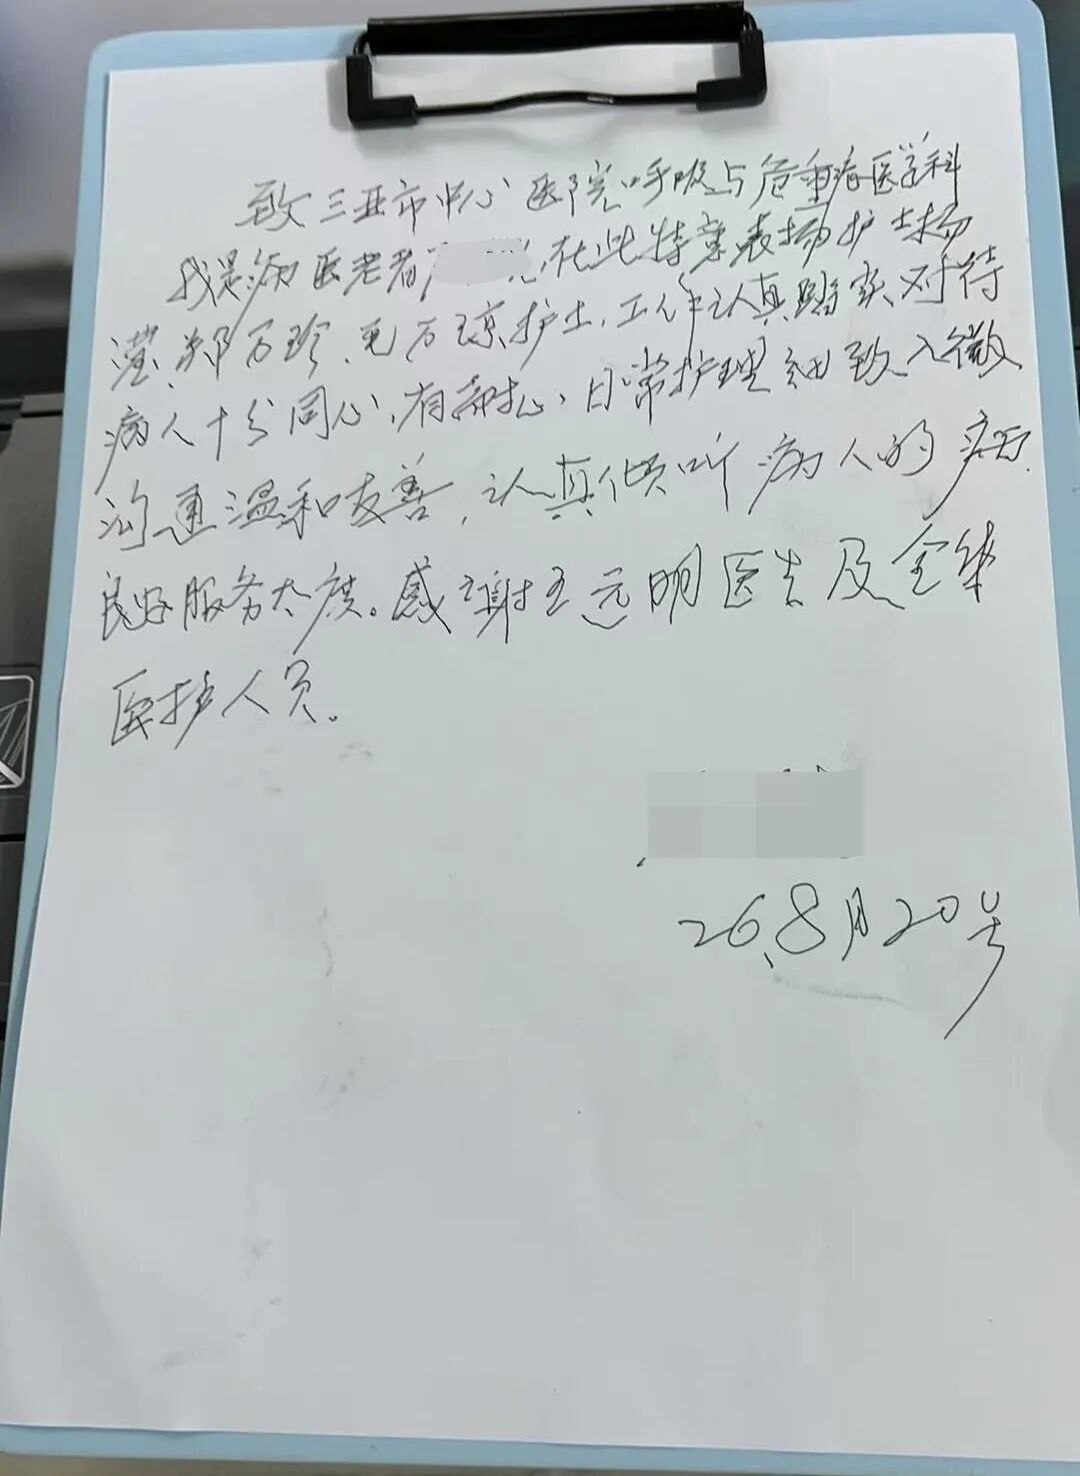 致三亚市中心医院呼吸与危重症医学科
我是病医老者 在此特意表扬护士杨
滢、郑万珍、 万琼护士，工作认真踏实对待
病人十分同心，有耐心、日常护理细致入微
沟通温和友善，认真倾听病人的
良好服务太度。感谢王远明医生及全体
医护人员。
26、8月20号